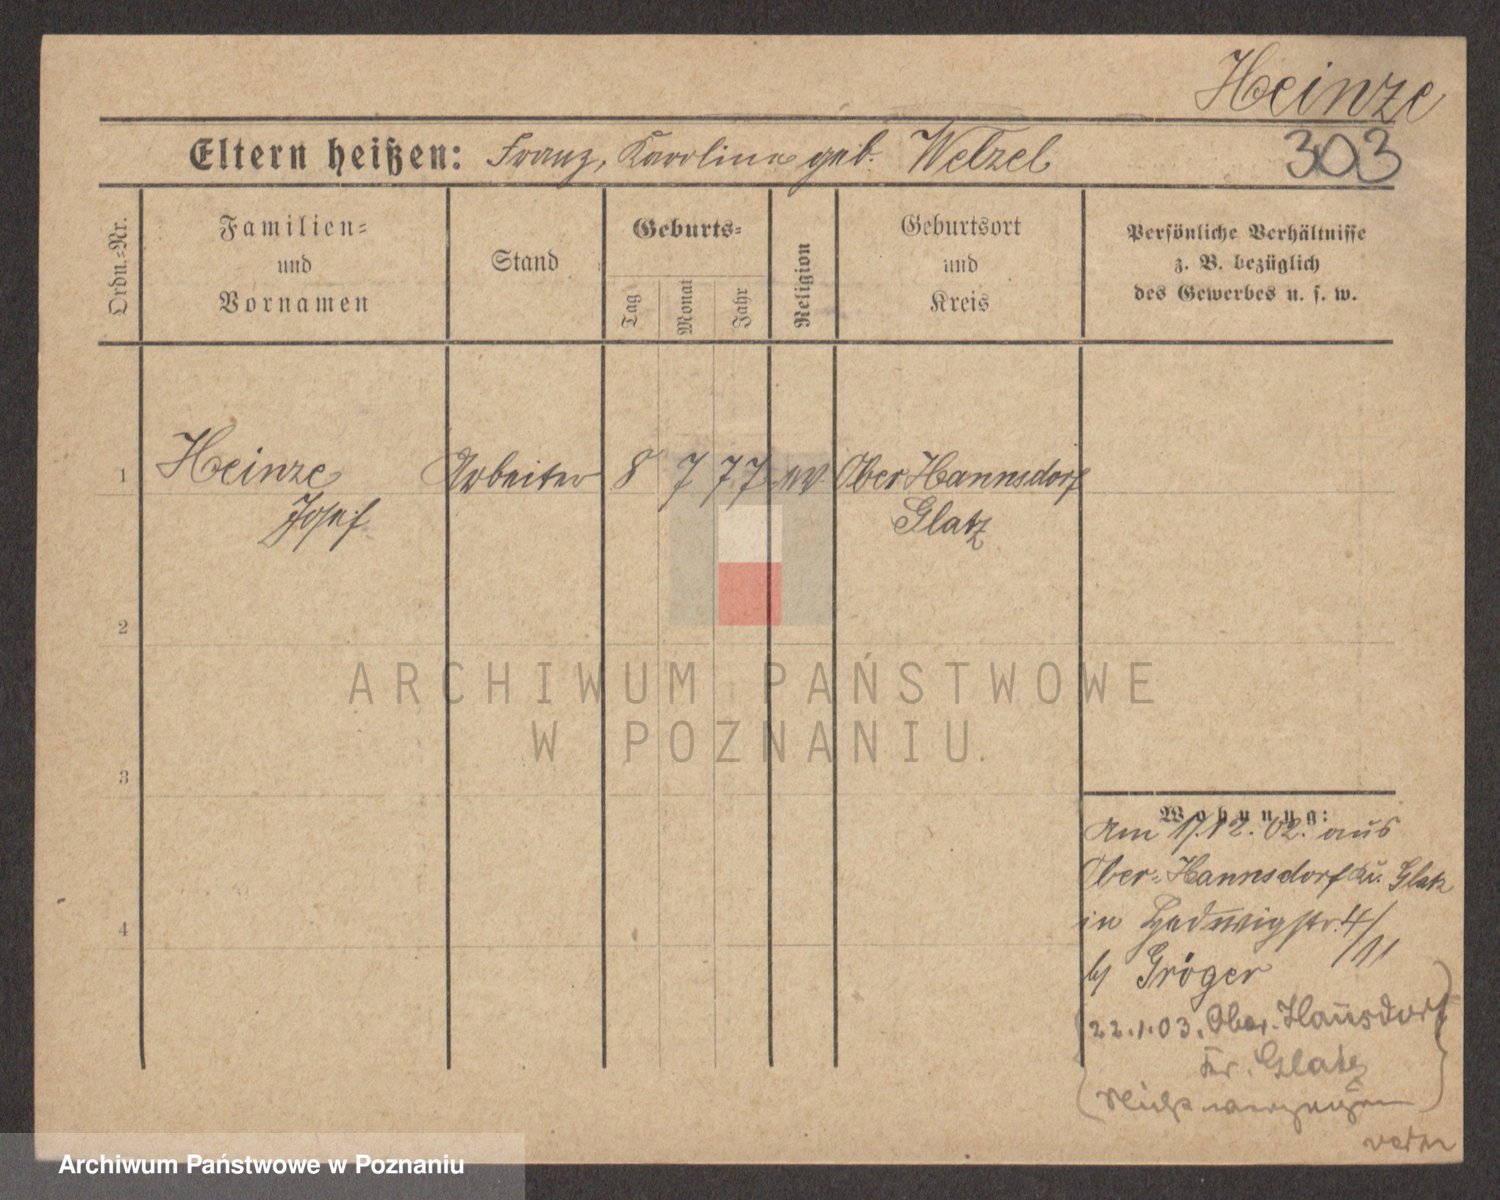 Heinze
303
Eltern heißen: Franz, Karoline geb. Welzel
Ordn.-Nr.
Familien-
und
Vornamen
Stand
Geburts-
Tag
Monat
Jahr
Religion
Geburtsort
und
Kreis
Persönliche Verhältnisse
z. B. bezüglich
des Gewerbes u. s. w.
1 Heinze Arbeiter 8 7 77 Ober Hannsdorf
Josef Glatz
2
3
4
Wohnung:
Am 17.12.02. aus
Ober-Hannsdorf Kr. Glatz
in Hedwigstr. 4/III
b/ Gröger
22.1.03. Ober-Hansdorf
Kr. Glatz
ARCHIWUM PAŃSTWOWE
W POZNANIU
Archiwum Państwowe w Poznaniu